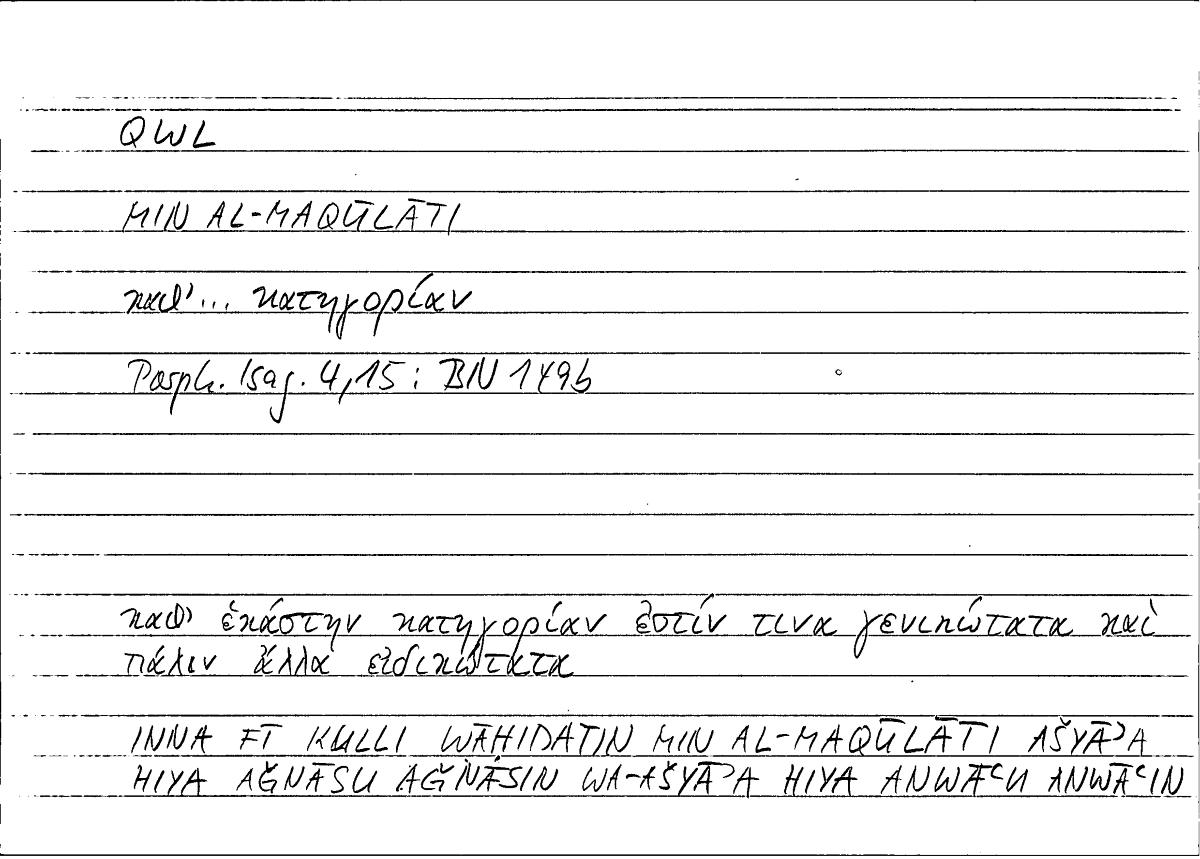 QWL
MIN AL-MAQŪLĀTI
καθ'... κατηγορίαν
Porph. Isag. 4,15 : BN 149b
καθ' ἑκάστην κατηγορίαν ἐστίν τινα γενικώτατα καὶ
πάλιν ἄλλα εἰδικώτατα
INNA FĪ KULLI WĀHIDATIN MIN AL-MAQŪLĀTI AŠYĀʾA
HIYA AǦNĀSU AǦNĀSIN WA-AŠYĀʾA HIYA ANWĀʿU ANWĀʿIN